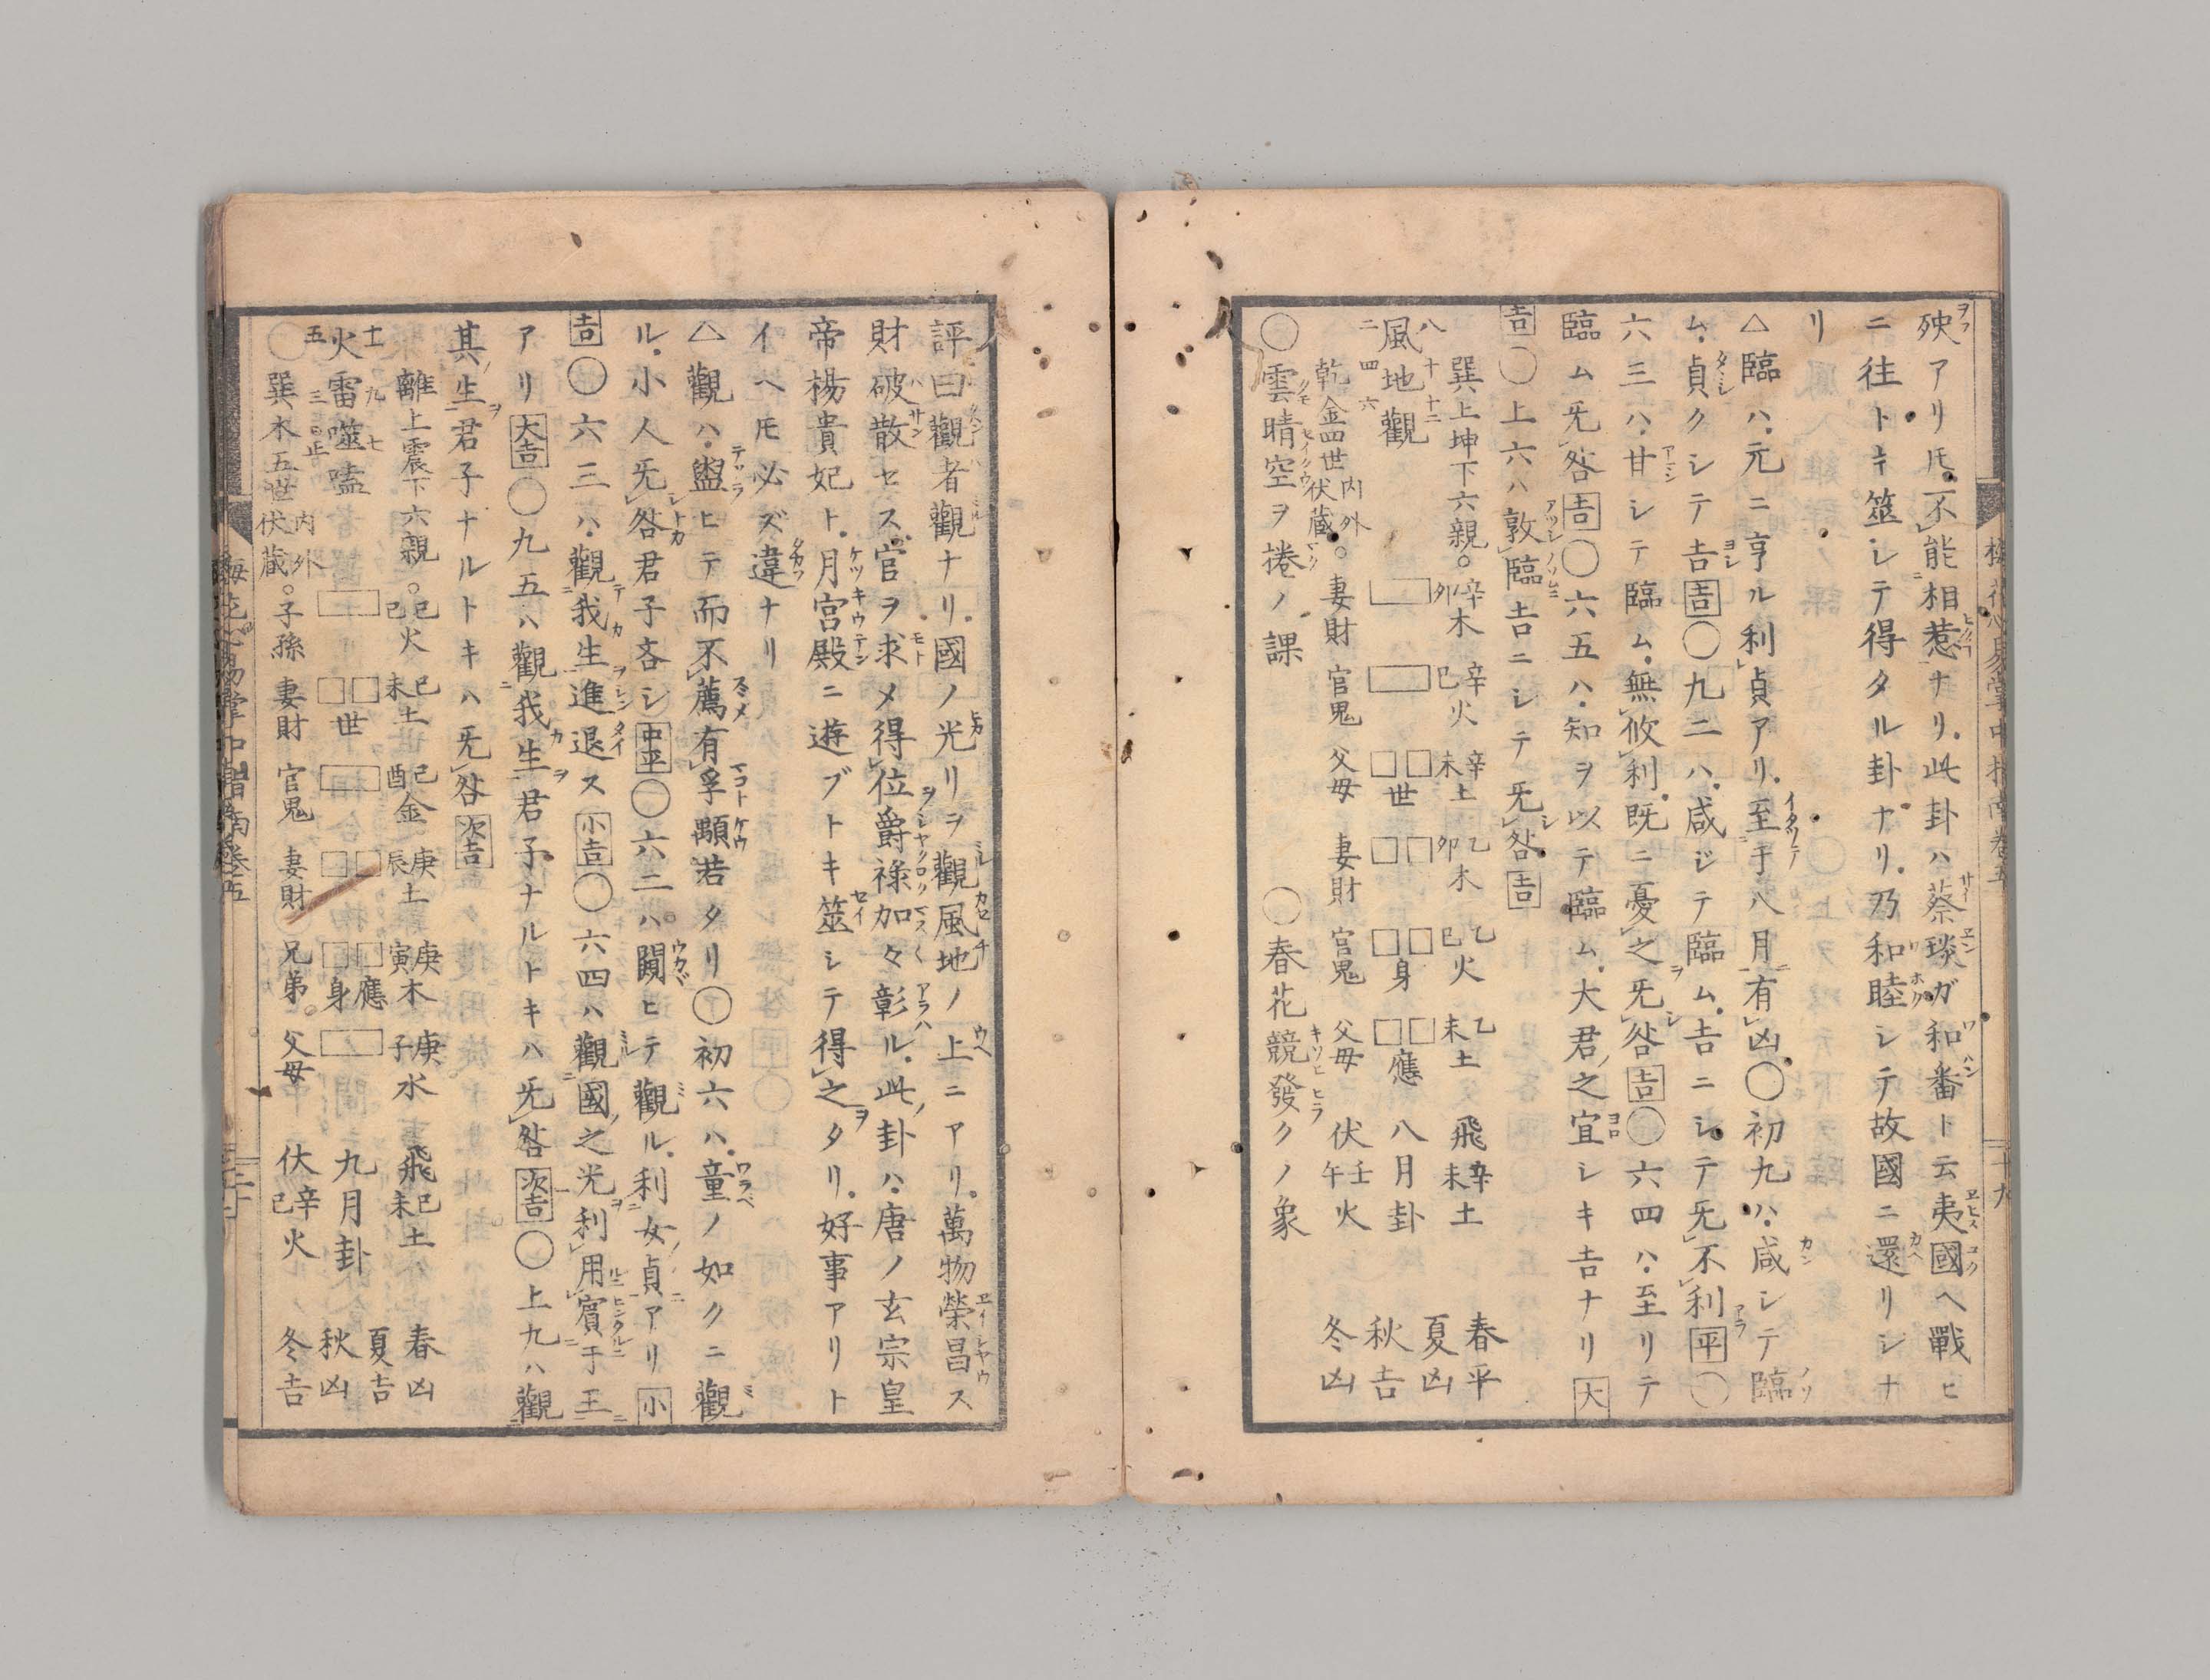 殃アリ𪜈不能相惹ナリ此卦ハ蔡琰ガ和番ト云夷國ヘ戰ヒ
ニ往トキ筮シテ得タル卦ナリ乃和睦シテ故國ニ還リシナ
リ
△臨ハ元ニ亨ル利貞アリ至于八月有凶○初九ハ咸シテ臨
ム貞クシテ吉吉○九二ハ咸ジテ臨ム吉ニシテ无不利平○
六三ハ甘シテ臨ム無攸利既ニ憂之无咎吉○六四ハ至リテ
臨ム无咎吉○六五ハ知ヲ以テ臨ム大君之宜シキ吉ナリ大
吉○上六ハ敦臨吉ニシテ无咎吉
巽上坤下六親○辛卯木 辛巳火 辛未土 乙卯木 乙巳火 乙未土 飛辛未土 春平
八十十二
風地觀 世 身 應 八月卦 夏凶 秋吉
二四六
乾金四世内外伏蔵○妻財 官鬼 父母 妻財 官鬼 父母 伏壬午火 冬凶
○雲晴空ヲ捲ノ課 ○春花競發クノ象
評曰觀者觀ナリ國ノ光リヲ觀風地ノ上ニアリ萬物榮昌ス
財破散セス官ヲ求メ得位爵祿加々彰ル此卦ハ唐ノ玄宗皇
帝楊貴妃ト月宮殿ニ遊ブトキ筮シテ得之タリ好事アリト
イヘ𪜈必ズ違ナリ
△觀ハ盥ヒテ而不薦有孚顒若タリ○初六ハ童ノ如クニ觀
ル小人无咎君子吝シ中平○六二ハ闚ヒテ觀ル利女貞アリ小
吉○六三ハ觀我生進退ス小吉○六四ハ觀國之光利用賓于王
アリ大吉○九五ハ觀我生君子ナルトキハ无咎次吉○上九ハ觀
其生君子ナルトキハ无咎次吉
離上震下六親○己巳火 己未土 己酉金 庚辰土 庚寅木 庚子水 飛己未土 春凶
十九七
火雷噬嗑 世 應 身 九月卦 夏吉 秋凶
五三正
巽木五世内外伏蔵○子孫 妻財 官鬼 妻財 兄弟 父母 伏辛巳火 冬吉
梅花心易掌中指南卷五 十九
梅花心易掌中指南卷五 二十